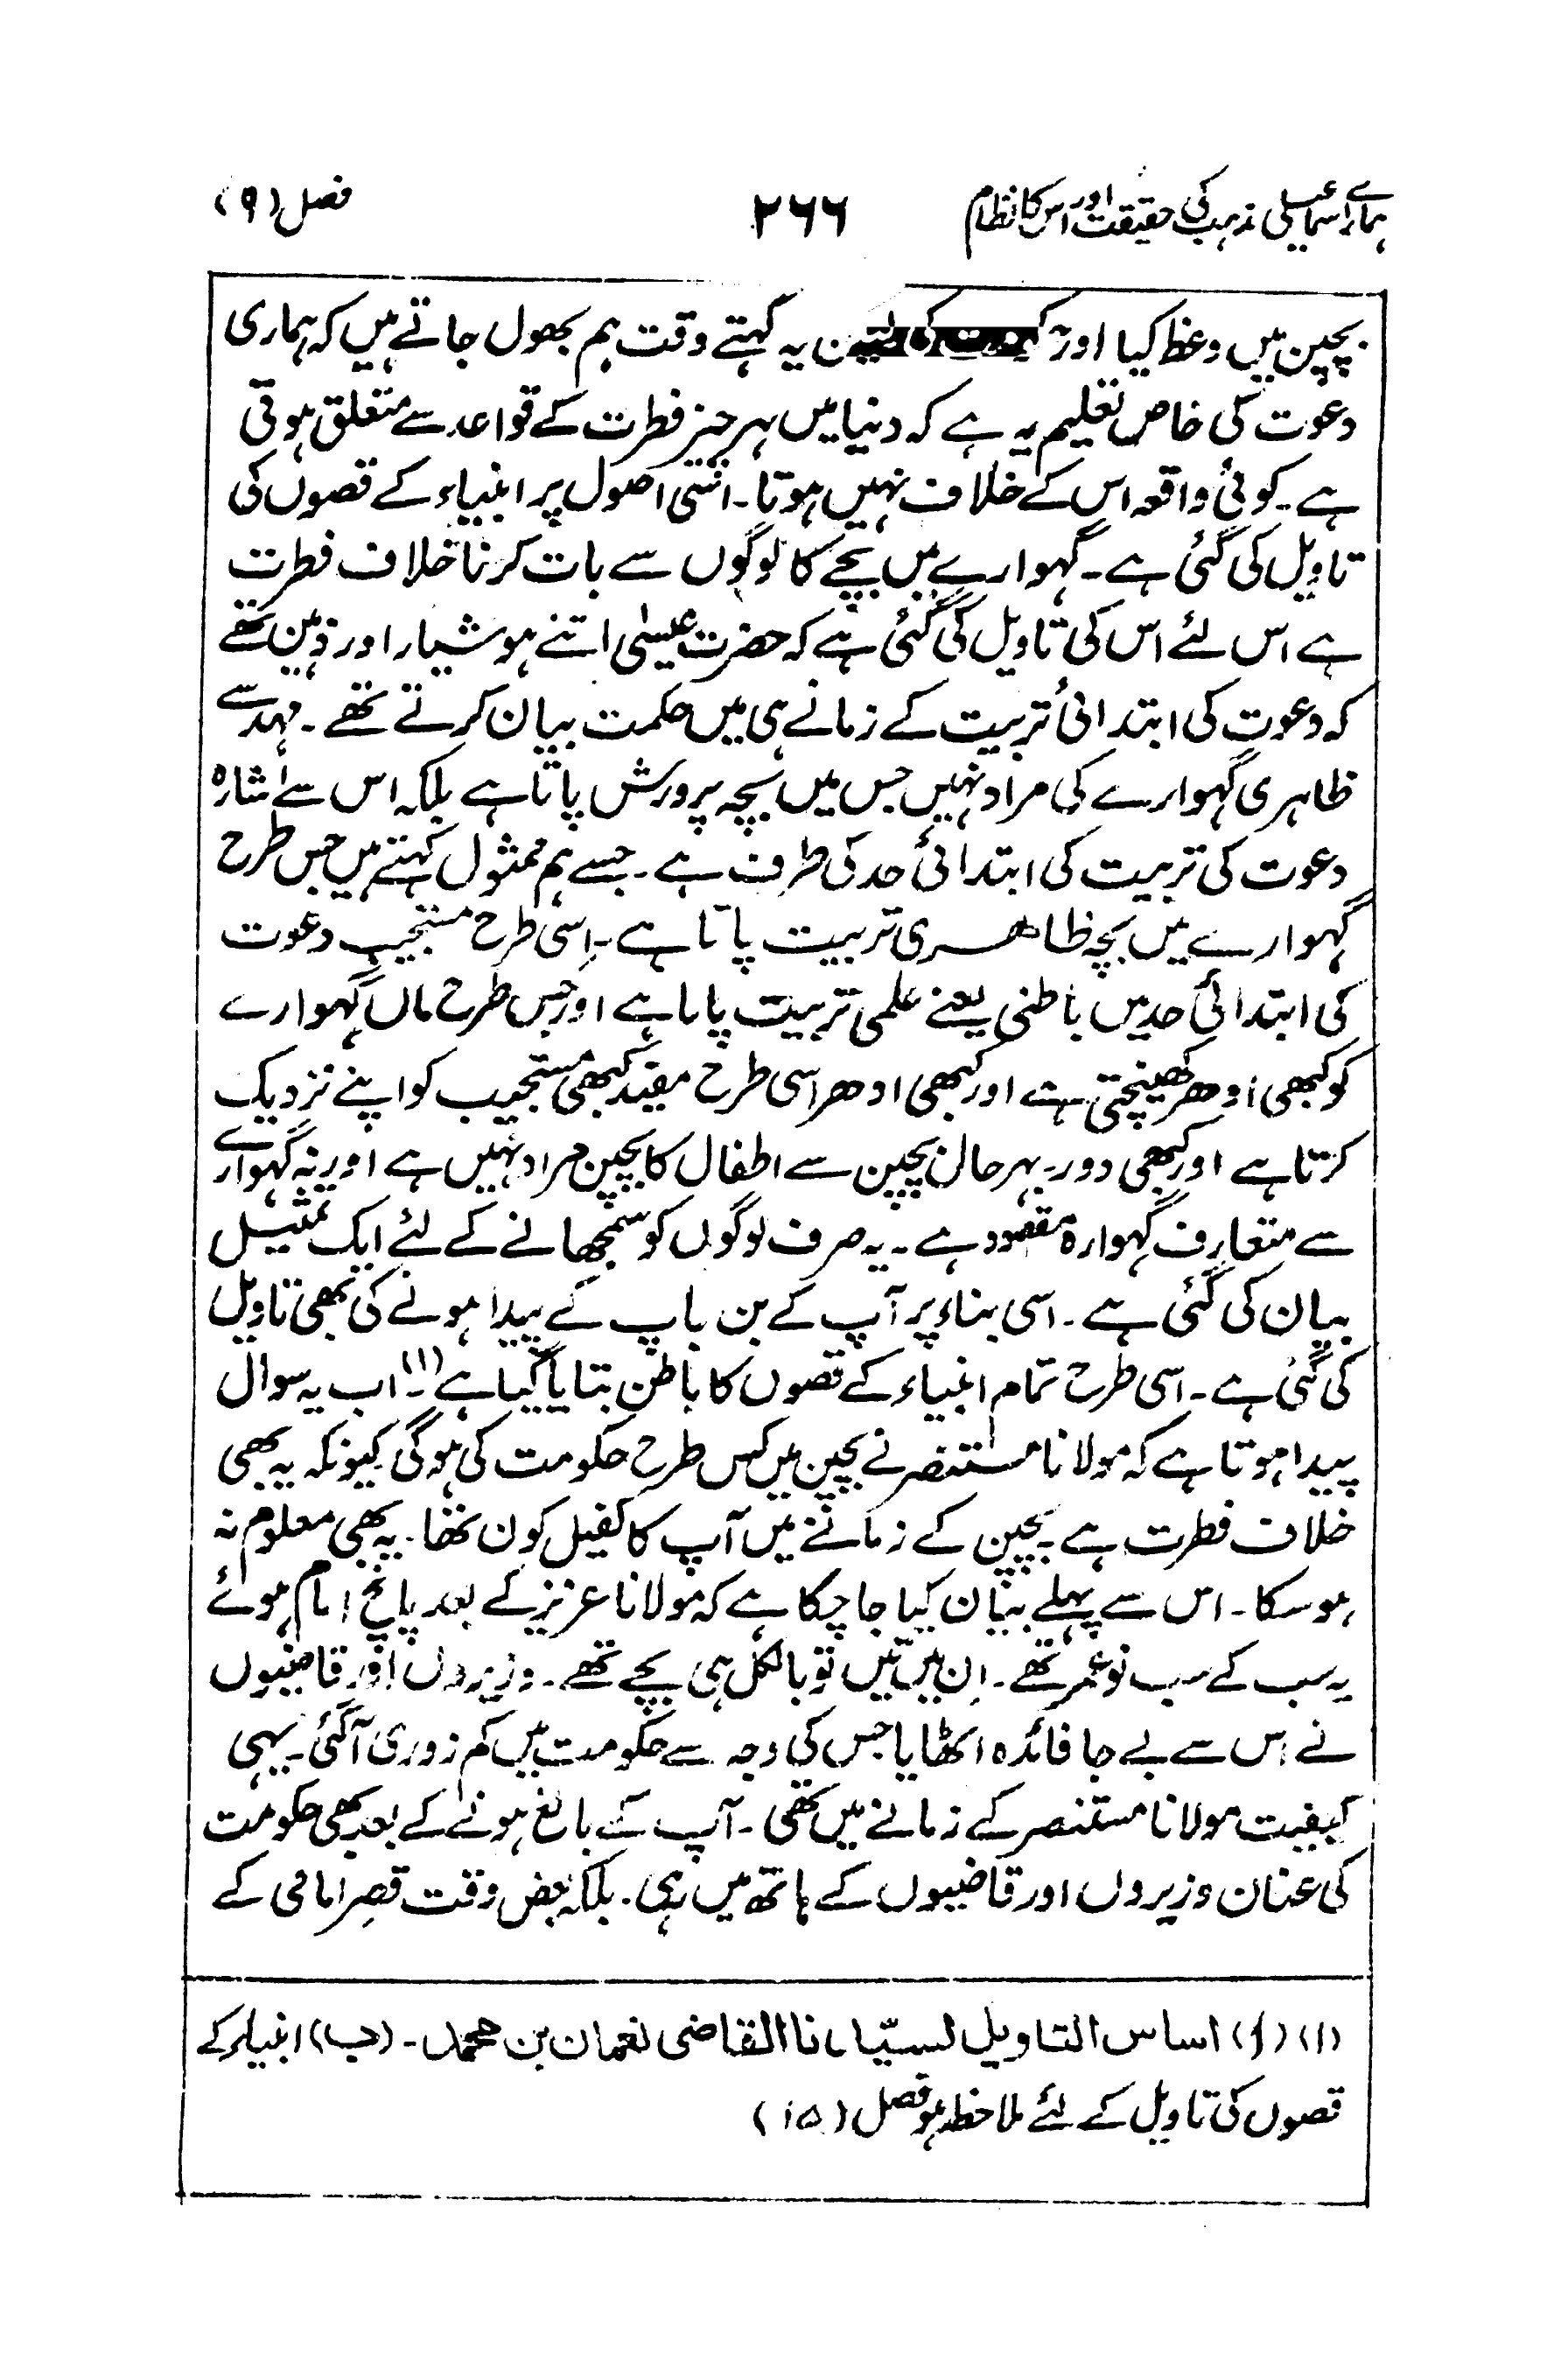 ہمارے اسماعیلی مذہب کی حقیقت اور اس کا نظام ۲۶۶ فصل (۹)
بچپن میں وعظ کیا اور یہ کہتے وقت ہم بھول جاتے ہیں کہ ہماری
دعوت کی خاص تعلیم یہ ہے کہ دنیا میں ہر چیز فطرت کے قواعد سے متعلق ہوتی
ہے۔ کوئی واقعہ اس کے خلاف نہیں ہوتا۔ اسی اصول پر انبیاء کے قصوں کی
تاویل کی گئی ہے۔ گہوارے میں بچے کا لوگوں سے بات کرنا خلاف فطرت
ہے اس لئے اس کی تاویل کی گئی ہے کہ حضرت عیسیٰ اتنے ہوشیار اور ذہین تھے
کہ دعوت کی ابتدائی تربیت کے زمانے ہی میں حکمت بیان کرتے تھے۔ مہد سے
ظاہری گہوارے کی مراد نہیں جس میں بچہ پرورش پاتا ہے بلکہ اس سے اشارہ
دعوت کی تربیت کی ابتدائی حد کی طرف ہے۔ جسے ہم ممثول کہتے ہیں جس طرح
گہوارے میں بچہ ظاہری تربیت پاتا ہے۔ اِسی طرح مستجیب دعوت
کی ابتدائی حد میں باطنی یعنے علمی تربیت پاتا ہے اور جس طرح ماں گہوارے
کو کبھی اِدھر کھینچتی ہے اور کبھی ادھر اسی طرح مفید کبھی مستجیب کو اپنے نزدیک
کرتا ہے اور کبھی دور۔ بہر حال بچپن سے اطفال کا بچپن مراد نہیں ہے اور نہ گہوارے
سے متعارف گہوارہ مقصود ہے۔ یہ صرف لوگوں کو سمجھانے کے لئے ایک تمثیل
بیان کی گئی ہے۔ اسی بناء پر آپ کے بن باپ کے پیدا ہونے کی بھی تاویل
کی گئی ہے۔ اسی طرح تمام انبیاء کے قصوں کا باطن بتایا گیا ہے (۱)۔ اب یہ سوال
پیدا ہوتا ہے کہ مولانا مستنصر نے بچپن میں کس طرح حکومت کی ہوگی کیونکہ یہ بھی
خلاف فطرت ہے۔ بچپن کے زمانے میں آپ کا کفیل کون تھا۔ یہ بھی معلوم نہ
ہوسکا۔ اس سے پہلے بیان کیا جا چکا ہے کہ مولانا عزیز کے بعد پانچ امام ہوئے
یہ سب کے سب نوعمر تھے۔ اِن میں تین تو بالکل ہی بچے تھے۔ وزیروں اور قاضیوں
نے اس سے بے جا فائدہ اٹھایا جس کی وجہ سے حکومت میں کم زوری آگئی۔ یہی
کیفیت مولانا مستنصر کے زمانے میں تھی۔ آپ کے بالغ ہونے کے بعد بھی حکومت
کی عنان وزیروں اور قاضیوں کے ہاتھ میں رہی۔ بلکہ بعض وقت قصرِ امامی کے
(۱) (أ) اساس التاویل لسیّدنا القاضی نعمان بن محمد۔ (ب) انبیاء کے
قصوں کی تاویل کے لئے ملاحظہ ہو فصل (۱۵)